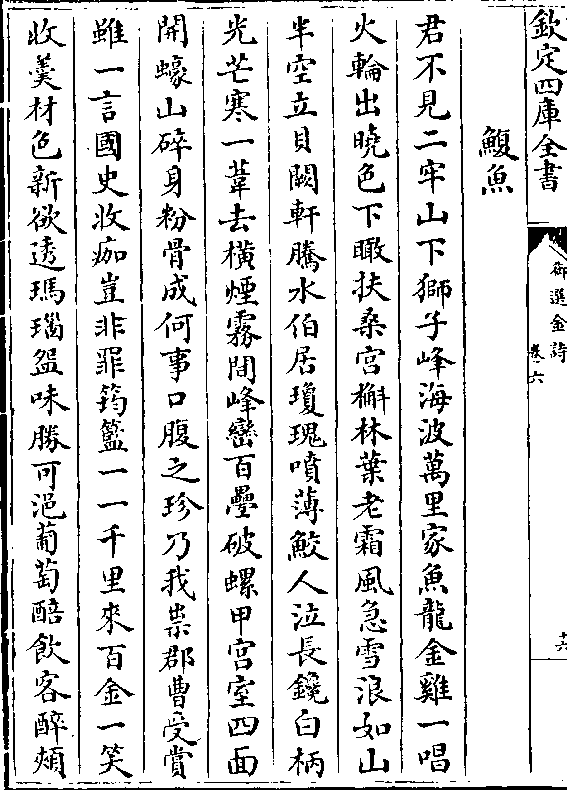 欽定四庫全書
御選金詩
卷六
十六
鰒魚
君不見二牢山下獅子峰海波萬里家魚龍金雞一唱
火輪出曉色下瞰扶桑宮槲林葉老霜風急雪浪如山
半空立貝闕軒騰水伯居瓊瑰噴薄鮫人泣長鑱白柄
光芒寒一葦去橫煙霧間峰巒百疊破螺甲宮室四面
開蠔山碎身粉骨成何事口腹之珍乃我祟郡曹受賞
雖一言國史收痂豈非罪筠籃一一千里來百金一笑
收羹材色新欲透瑪瑙盌味勝可浥葡萄醅飲客醉頰